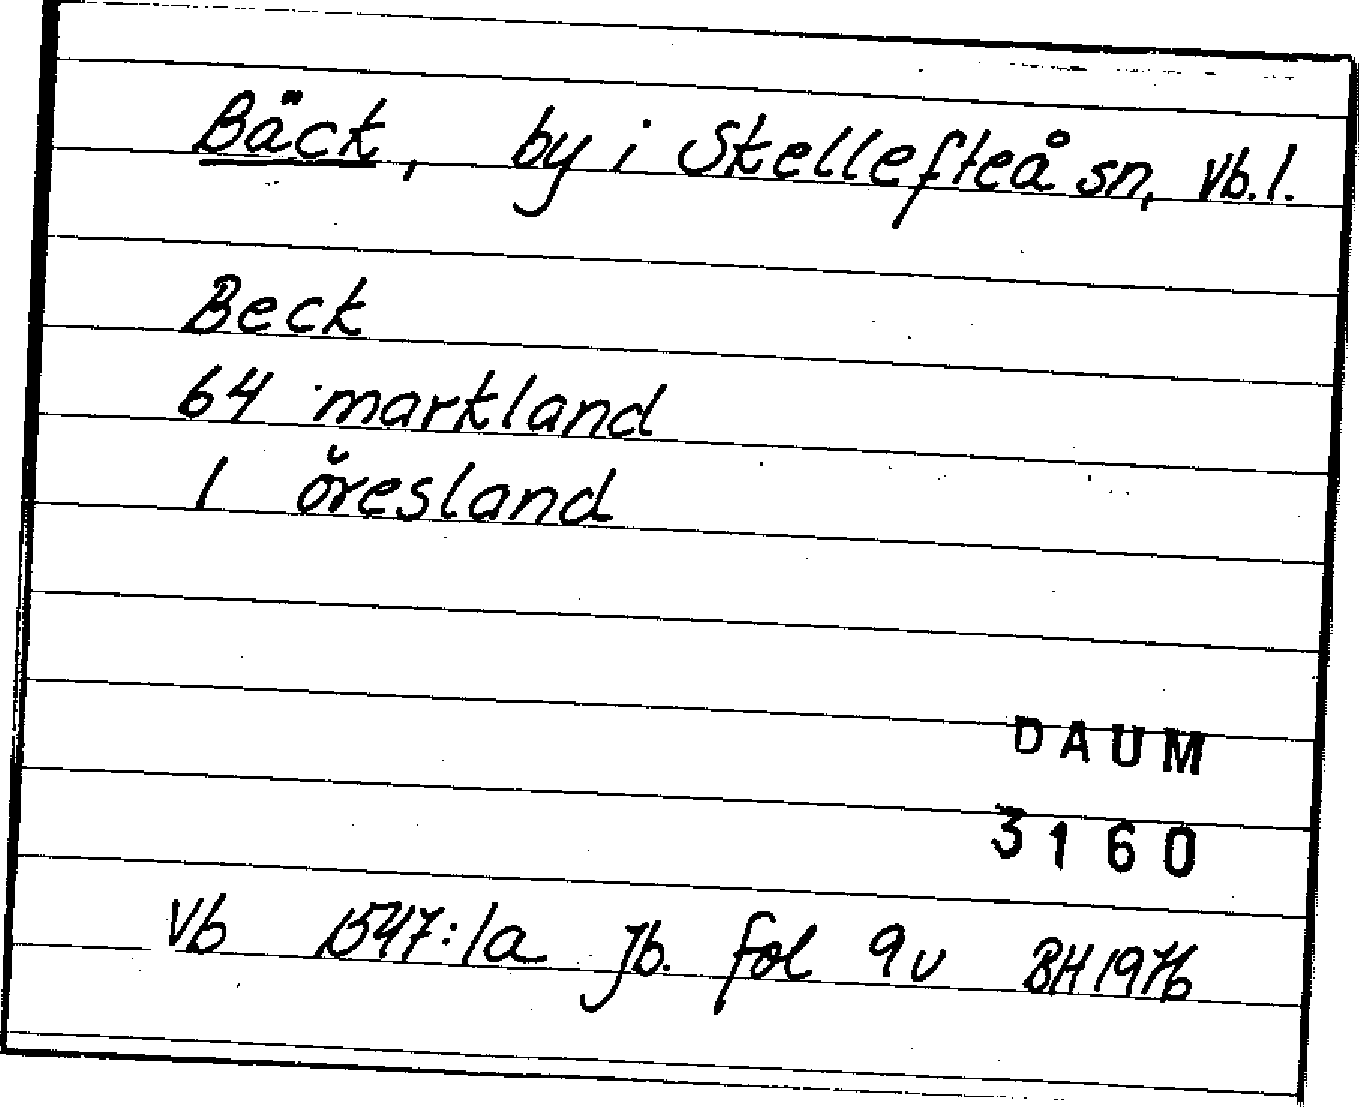 Bäck, by i Skellefteå sn, Vb. l.
Beck
64 markland
1 öresland
DAUM
3160
Vb 1547:1a jb. fol 9v BH 1976